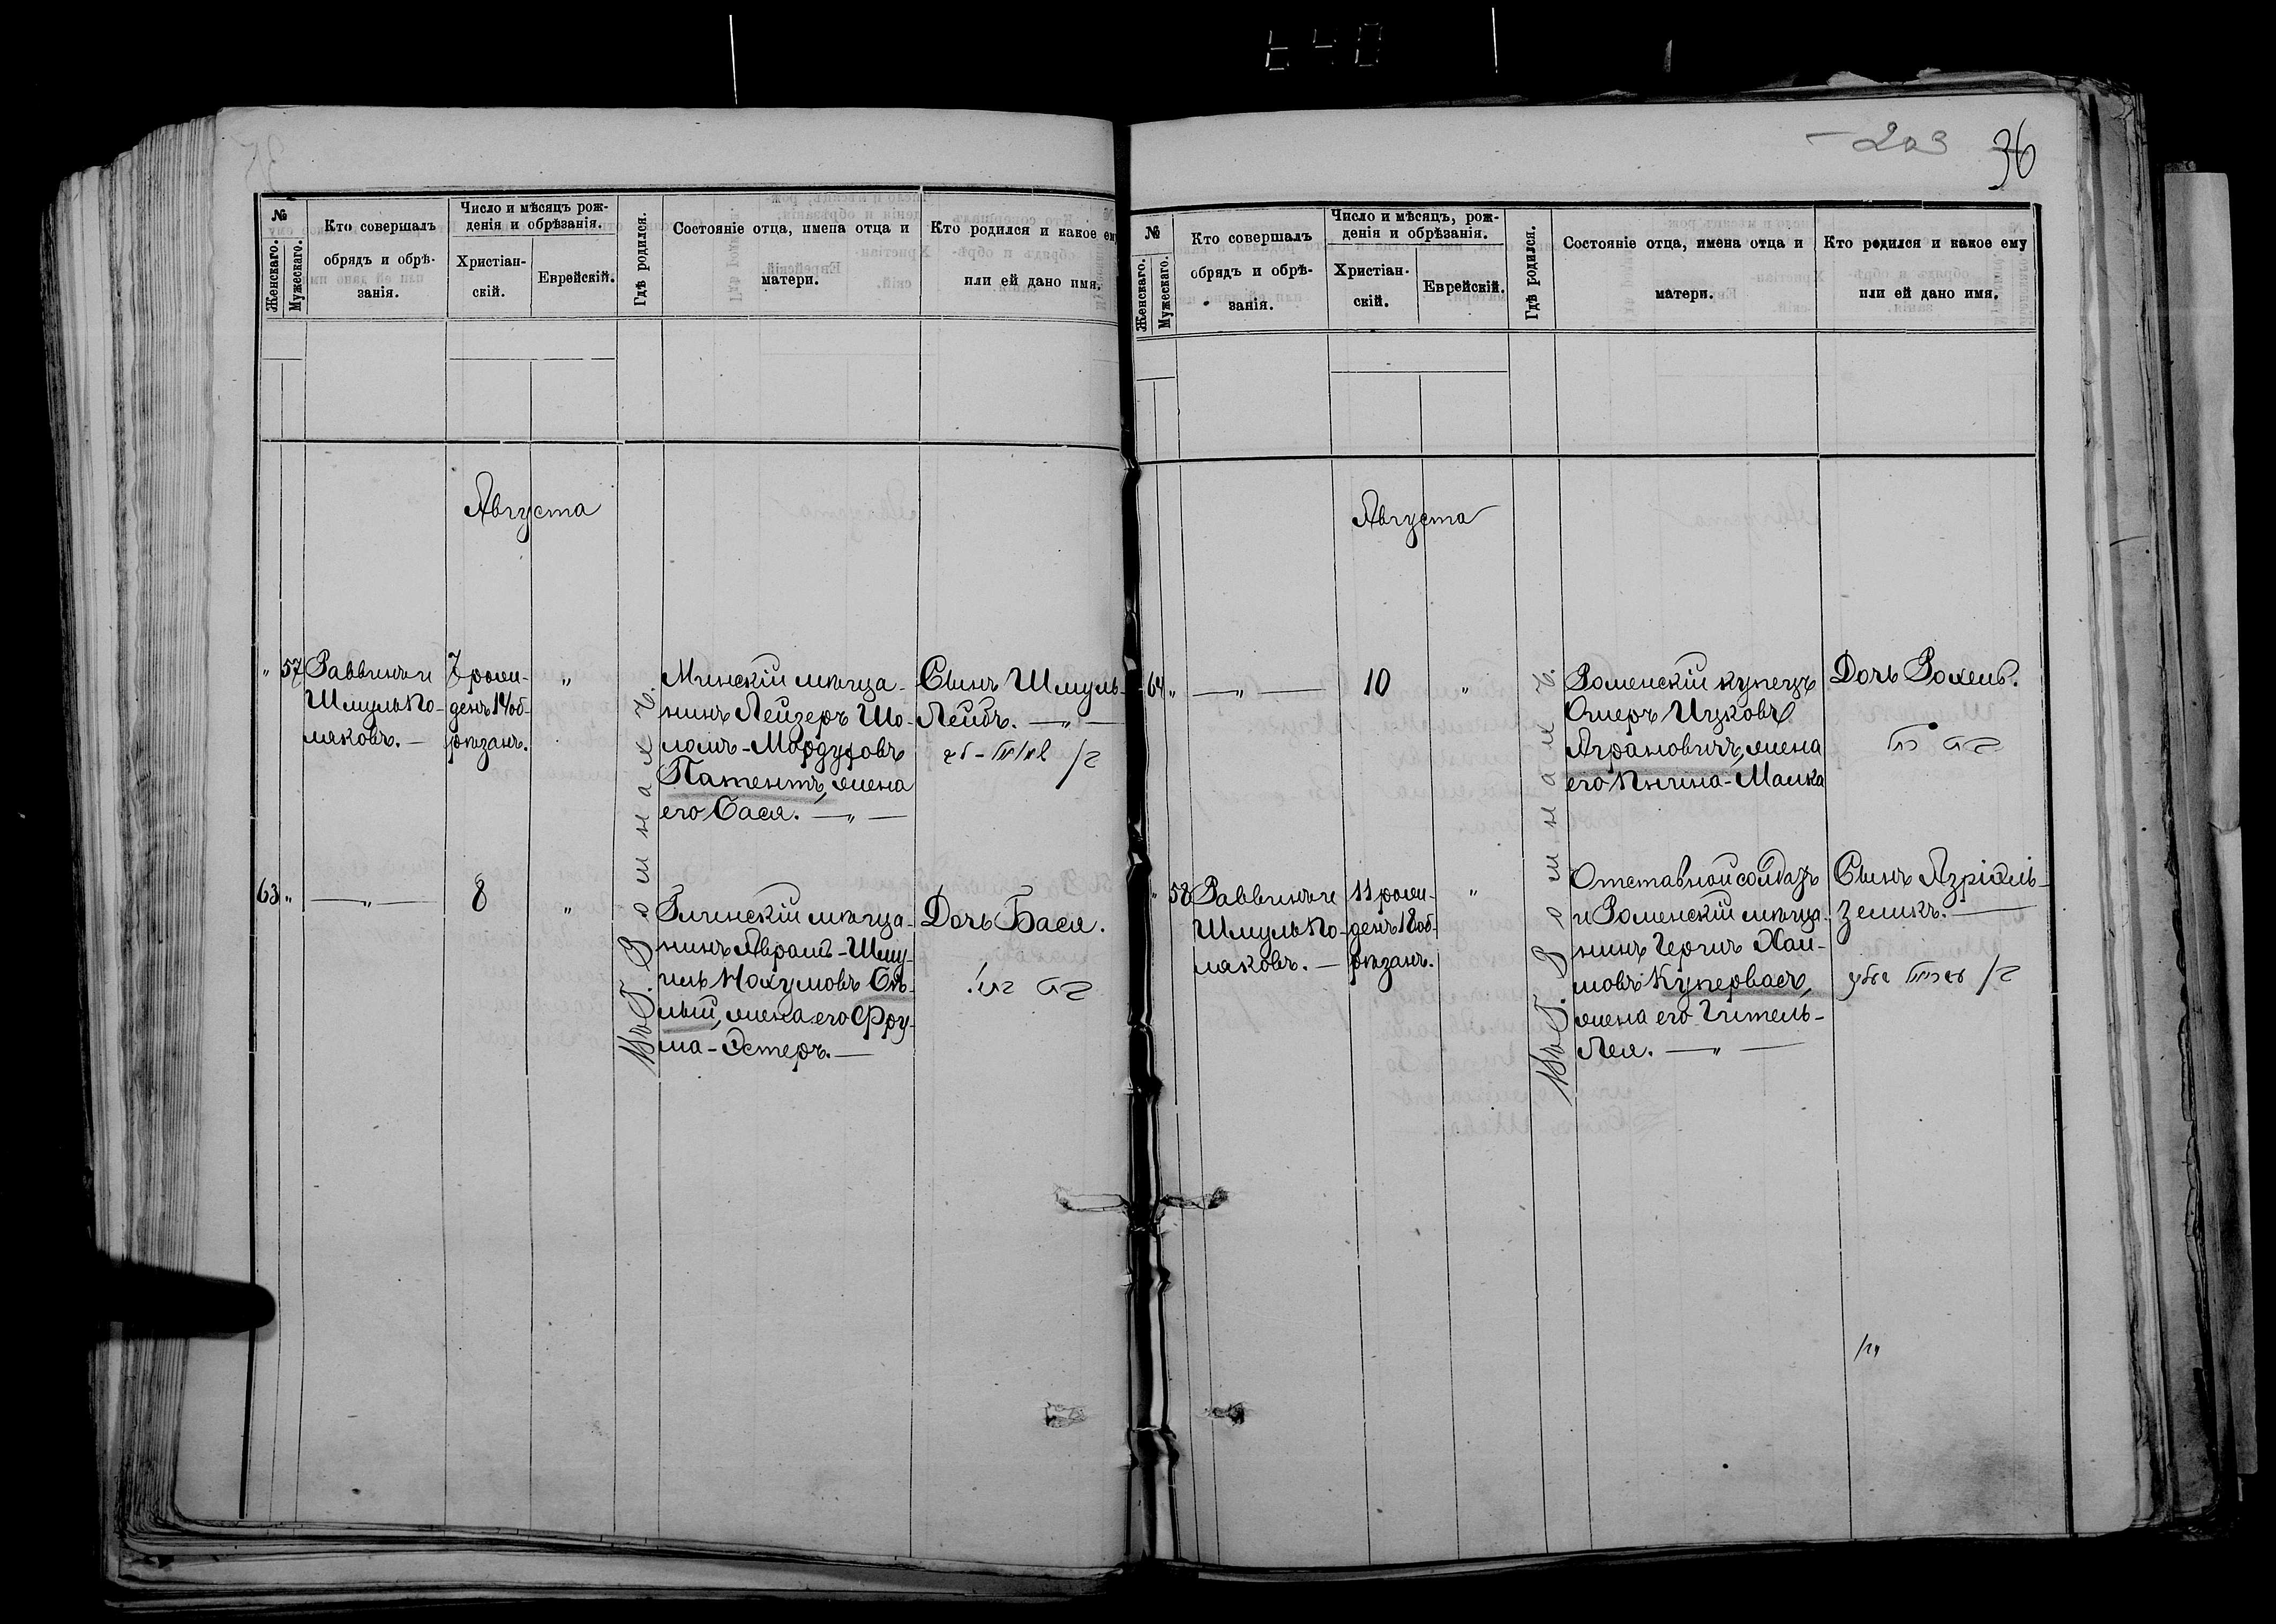 203 36
№
Женскаго.
Мужескаго.
Кто совершалъ
обрядъ и обрѣ-
занія.
Число и мѣсяцъ рож-
денія и обрѣзанія.
Христіан-
скій.
Еврейскій.
Гдѣ родился.
Состояніе отца, имена отца и
матери.
Кто родился и какое ему
или ей дано имя.
Августа
" 57
Раввинъ и
Шмуль По-
ляковъ. —
7 рож-
денъ 14 об-
рѣзанъ.
"
Въ Г. Ромнахъ.
Минскій мѣща-
нинъ Лейзеръ Шо-
ломъ-Мордуховъ
Патентъ, жена
его Бася. — " —
Сынъ Шмуль-
Лейбъ. —
63 "
— " —
8
"
Глинскій мѣща-
нинъ Абрамъ-Шму-
иль Нохумовъ Бѣ-
лый, жена его Фру-
ма-Эстеръ. —
Дочь Бася.
בת
№
Женскаго.
Мужескаго.
Кто совершалъ
обрядъ и обрѣ-
занія.
Число и мѣсяцъ, рож-
денія и обрѣзанія.
Христіан-
скій.
Еврейскій.
Гдѣ родился.
Состояніе отца, имена отца и
матери.
Кто родился и какое ему
или ей дано имя.
Августа
64 "
— " —
10
"
Въ Г. Ромнахъ.
Роменскій купецъ
Омеръ Ицковъ
Аграновичъ, жена
его Машка
Дочь Рохель.
בת
" 58
Раввинъ и
Шмуль По-
ляковъ. —
11 рож-
денъ 18 об-
рѣзанъ.
"
Отставной солдатъ
и Роменскій мѣща-
нинъ Герцъ Хаи-
мовъ Купервасъ,
жена его Гитель-
Лея. — " —
Сынъ Азріель-
Зеликъ. —